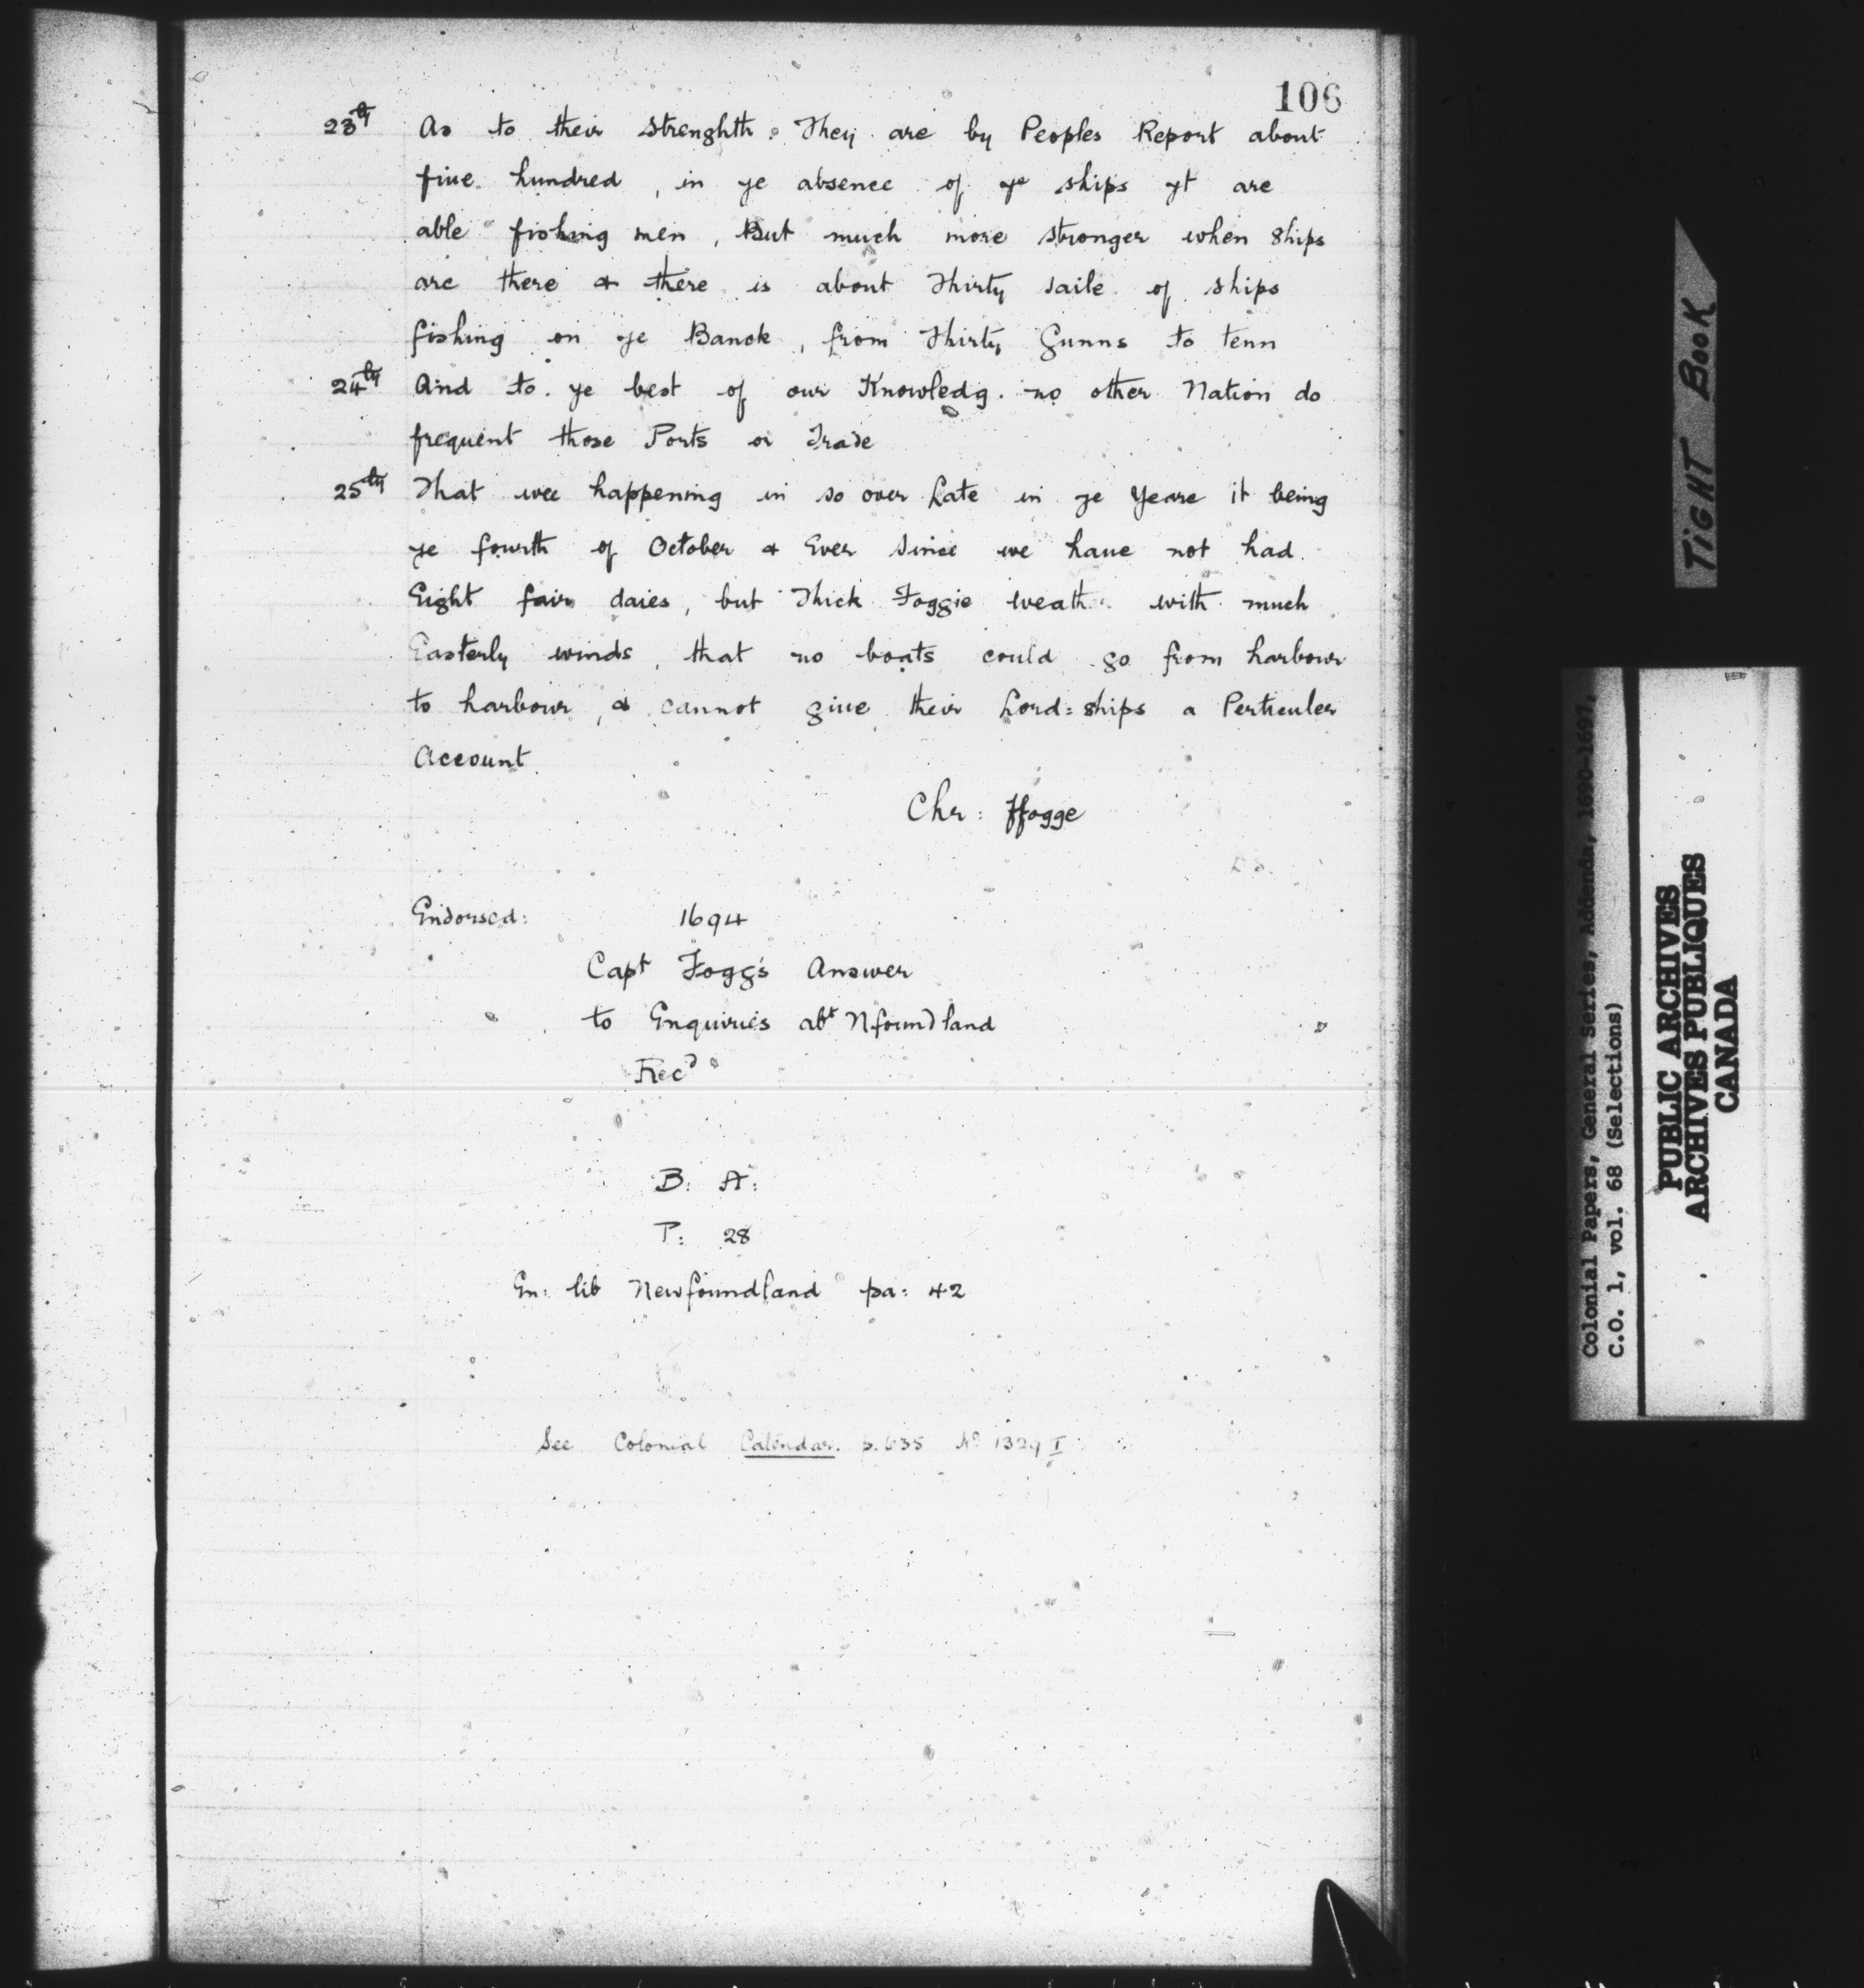 106
23th As to their strenghth. They are by Peoples Report about
fiue hundred, in ye absence of ye ships yt are
able fishing men, But much more stronger when Ships
are there & there is about Thirty saile of ships
fishing on ye Banck, from Thirty Gunns to tenn
24thy And to ye best of our Knowledg. no other Nation do
frequent those Ports or Trade
25thy That wee happening in so over Late in ye Yeare it being
ye fourth of October & Ever Since we haue not had
Eight fair daies, but Thick Foggie weath with much
Easterly winds, that no boats could go from harbour
to harbour, & cannot giue their Lord=ships a Perticuler
Account.
Chr: ffogge
Endorsed: 1694
Capt Fogg's Answer
to Enquiries abt Nfoundland
B: A:
P: 28
En: lib Newfoundland pa: 42
See Colonial Calendar. p. 635 No 1329 I
TIGHT BOOK
Colonial Papers, General Series, Addenda, 1690-1697,
C.O. 1, vol. 68 (Selections)
PUBLIC ARCHIVES
ARCHIVES PUBLIQUES
CANADA